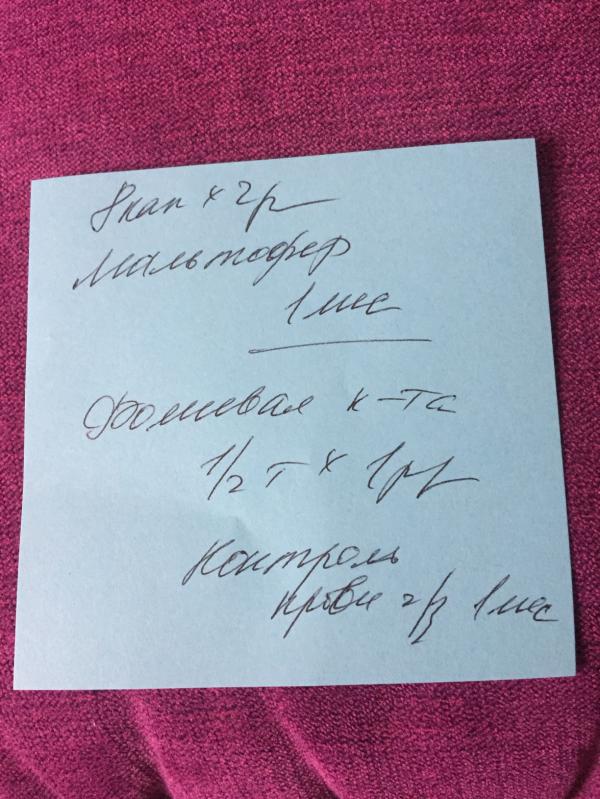 8 кап х 2р
Мальтофер
1 мес
Фолиевая к-та
1/2 т х 1р/
Контроль
крови ч/з 1 мес